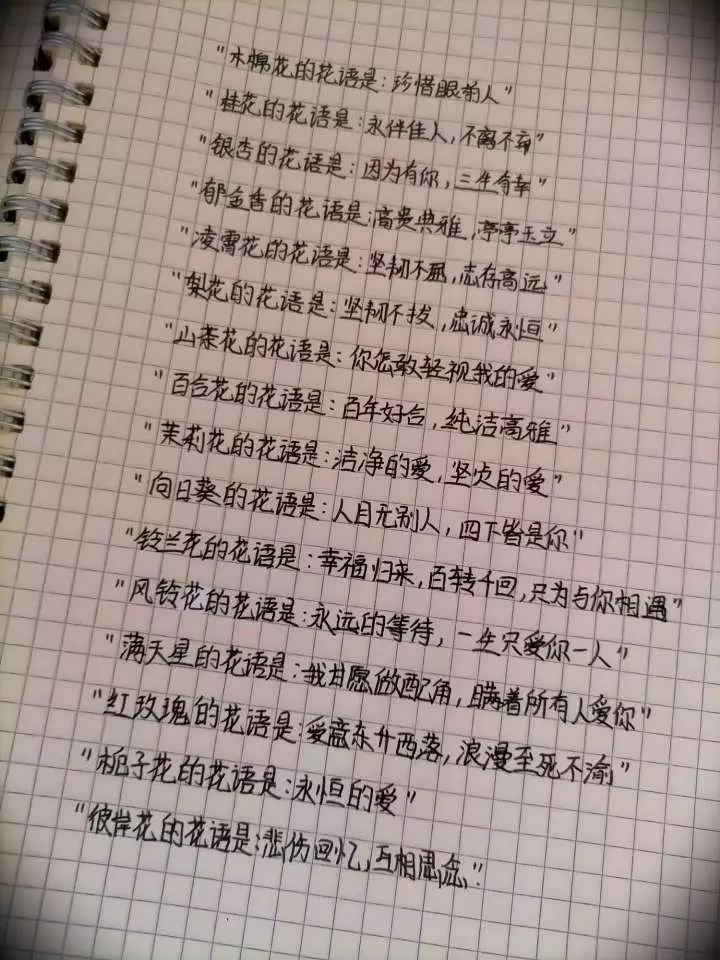 "木棉花的花语是：珍惜眼前人"
"桂花的花语是：永伴佳人，不离不弃"
"银杏的花语是：因为有你，三生有幸"
"郁金香的花语是：高贵典雅，亭亭玉立"
"凌霄花的花语是：坚韧不屈，志存高远"
"梨花的花语是：坚韧不拔，忠诚永恒"
"山茶花的花语是：你怎敢轻视我的爱"
"百合花的花语是：百年好合，纯洁高雅"
"茉莉花的花语是：洁净的爱，坚贞的爱"
"向日葵的花语是：人目无别人，四下皆是你"
"铃兰花的花语是：幸福归来，百转千回，只为与你相遇"
"风铃花的花语是：永远的等待，一生只爱你一人"
"满天星的花语是：我甘愿做配角，瞒着所有人爱你"
"红玫瑰的花语是：爱意东升西落，浪漫至死不渝"
"栀子花的花语是：永恒的爱"
"彼岸花的花语是：悲伤回忆，互相思念"